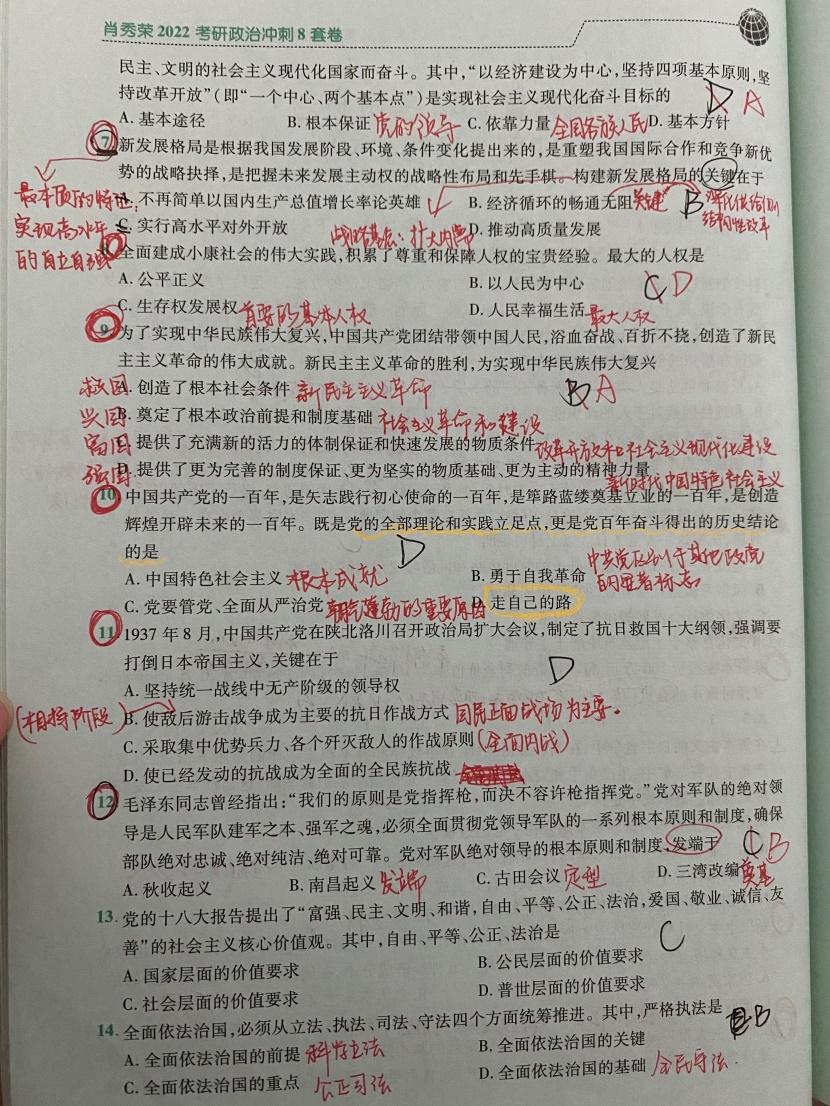 肖秀荣2022考研政治冲刺8套卷
民主、文明的社会主义现代化国家而奋斗。其中,“以经济建设为中心,坚持四项基本原则,坚
持改革开放”(即“一个中心、两个基本点”)是实现社会主义现代化奋斗目标的 D A
A. 基本途径 B. 根本保证 党的领导 C. 依靠力量 全国各族人民 D. 基本方针
7. 新发展格局是根据我国发展阶段、环境、条件变化提出来的,是重塑我国国际合作和竞争新优
势的战略抉择,是把握未来发展主动权的战略性布局和先手棋。构建新发展格局的关键在于
最本质的特征: A. 不再简单以国内生产总值增长率论英雄 B. 经济循环的畅通无阻 关键 B 深化供给侧
实现高水平 C. 实行高水平对外开放 战略基点:扩大内需 D. 推动高质量发展 结构性改革
的自立自强 8. 全面建成小康社会的伟大实践,积累了尊重和保障人权的宝贵经验。最大的人权是
A. 公平正义 B. 以人民为中心 C D
C. 生存权发展权 首要的基本人权 D. 人民幸福生活 最大人权
9. 为了实现中华民族伟大复兴,中国共产党团结带领中国人民,浴血奋战、百折不挠,创造了新民
主主义革命的伟大成就。新民主主义革命的胜利,为实现中华民族伟大复兴
救国 A. 创造了根本社会条件 新民主主义革命 B A
兴国 B. 奠定了根本政治前提和制度基础 社会主义革命和建设
富国 C. 提供了充满新的活力的体制保证和快速发展的物质条件 改革开放和社会主义现代化建设
强国 D. 提供了更为完善的制度保证、更为坚实的物质基础、更为主动的精神力量 新时代中国特色社会主义
10. 中国共产党的一百年,是矢志践行初心使命的一百年,是筚路蓝缕奠基立业的一百年,是创造
辉煌开辟未来的一百年。既是党的全部理论和实践立足点,更是党百年奋斗得出的历史结论
的是 D
A. 中国特色社会主义 根本成就 B. 勇于自我革命 中共党区别于其他政党的显著标志
C. 党要管党、全面从严治党 朝气蓬勃的重要原因 D. 走自己的路
11. 1937年8月,中国共产党在陕北洛川召开政治局扩大会议,制定了抗日救国十大纲领,强调要
打倒日本帝国主义,关键在于 D
A. 坚持统一战线中无产阶级的领导权
(相持阶段) B. 使敌后游击战争成为主要的抗日作战方式 国民正面战场为主要。
C. 采取集中优势兵力、各个歼灭敌人的作战原则 (全面内战)
D. 使已经发动的抗战成为全面的全民族抗战
12. 毛泽东同志曾经指出:“我们的原则是党指挥枪,而决不容许枪指挥党。”党对军队的绝对领
导是人民军队建军之本、强军之魂,必须全面贯彻党领导军队的一系列根本原则和制度,确保
部队绝对忠诚、绝对纯洁、绝对可靠。党对军队绝对领导的根本原则和制度,发端于 C B
A. 秋收起义 B. 南昌起义 发端 C. 古田会议 定型 D. 三湾改编 奠基
13. 党的十八大报告提出了“富强、民主、文明、和谐,自由、平等、公正、法治,爱国、敬业、诚信、友
善”的社会主义核心价值观。其中,自由、平等、公正、法治是 C
A. 国家层面的价值要求 B. 公民层面的价值要求
C. 社会层面的价值要求 D. 普世层面的价值要求
14. 全面依法治国,必须从立法、执法、司法、守法四个方面统筹推进。其中,严格执法是 B
A. 全面依法治国的前提 科学立法 B. 全面依法治国的关键
C. 全面依法治国的重点 公正司法 D. 全面依法治国的基础 全民守法.